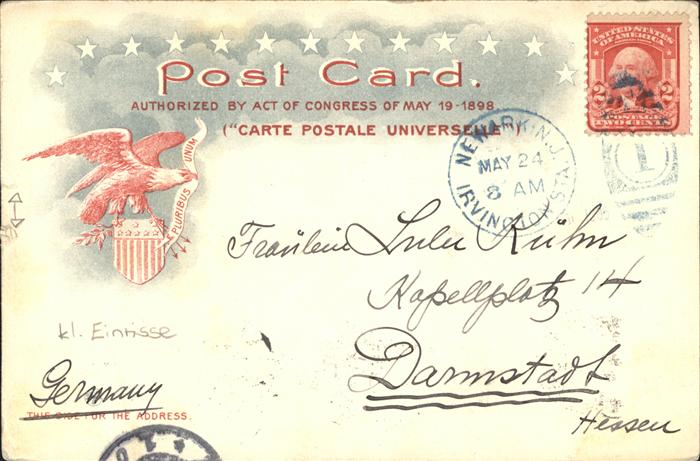 Post Card.
AUTHORIZED BY ACT OF CONGRESS OF MAY 19-1898.
("CARTE POSTALE UNIVERSELLE")
UNITED STATES OF AMERICA
2 2
POSTAGE
TWO CENTS
NEWARK, N.J.
MAY 24
8 AM
IRVINGTON STA.
1
E PLURIBUS UNUM
Fräulein Lulu Kühn
Kapellplatz 14
kl. Einrisse
Darmstadt
Germany
THIS SIDE FOR THE ADDRESS.
Hessen